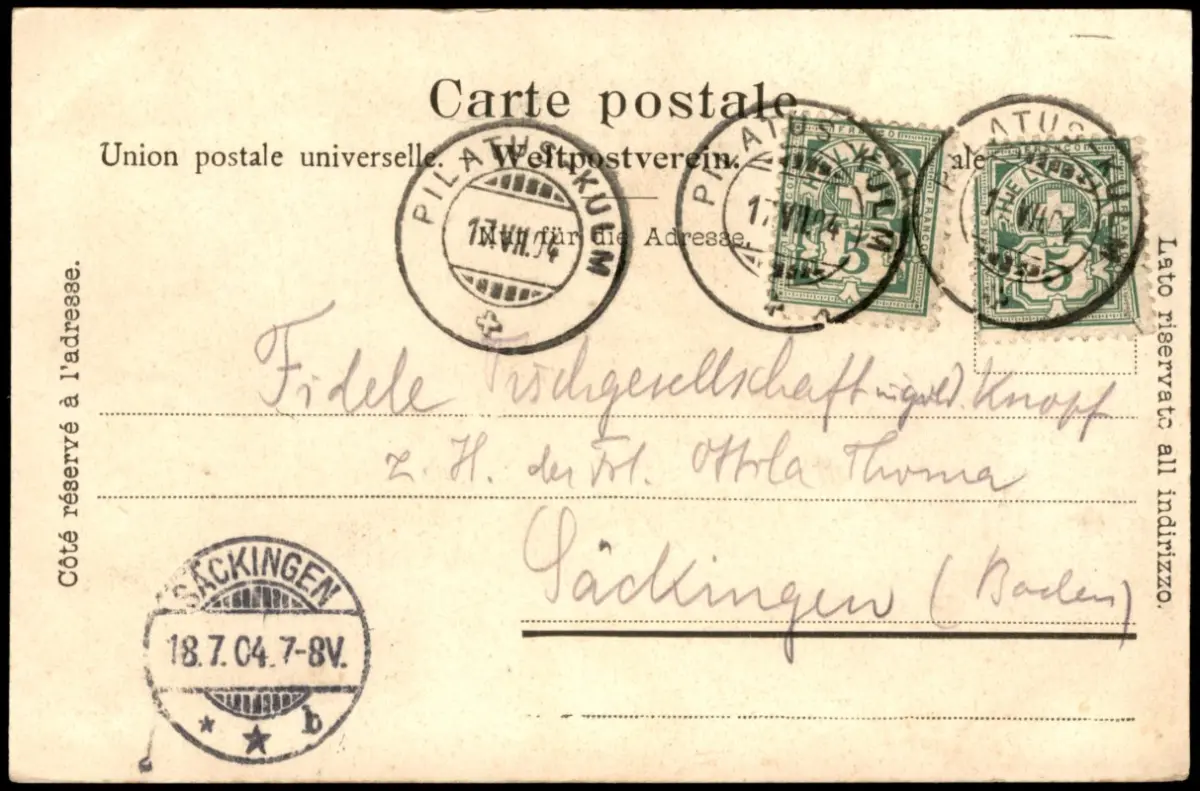 Carte postale
Union postale universelle. Weltpostverein. ale
Nur für die Adresse.
Côté réservé à l'adresse.
Lato riservato all indirizzo.
PILATUS-KULM
17.VII.04
PILATUS-KULM
17.VII.04
FRANCO
HELVETIA
5
PILATUS-KULM
VII.04
FRANCO
HELVETIA
5
Fidele Tischgesellschaft Knopf
z. H. der Frl. Ottila Thoma
Säckingen (Baden)
SÄCKINGEN
18.7.04.7-8V.
b